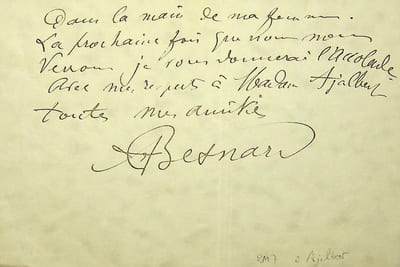 Dans la main de ma femme.
La prochaine fois que nous nous
Verrons je vous donnerai l'accolade
Avec mes respects à Madame Ajalbert
toutes mes amitiés
ABesnard
à Ajalbert